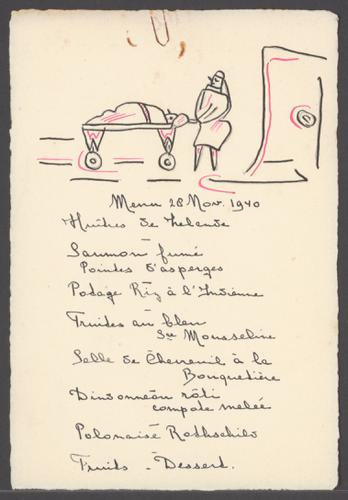 Menu 28 Nov. 1940
Huîtres de Zelande
Saumon fumé
Pointes d'asperges
Potage Riz à l'Indienne
Truites au bleu
Sce Mousseline
Selle de Chevreuil à la
Bouquetière
Dindonneau rôti
compote melée
Polonaise Rothschild
Fruits - Dessert.